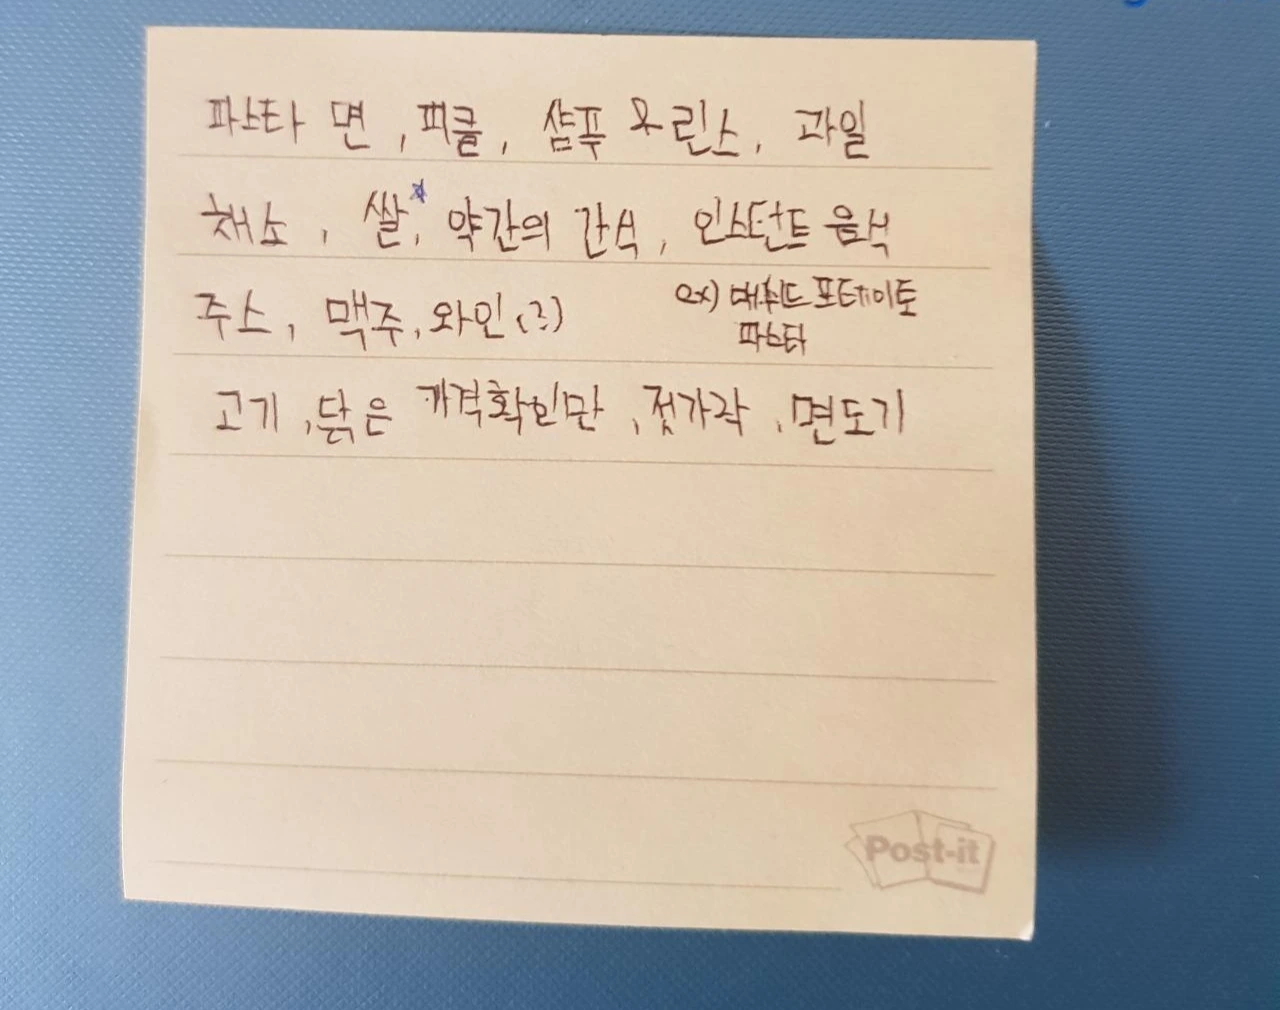 파스타 면, 피클, 샴푸 & 린스, 과일
채소, 쌀*, 약간의 간식, 인스턴트 음식
ex) 매쉬드 포테이토
파스타
주스, 맥주, 와인(?)
고기, 닭은 가격확인만, 젓가락, 면도기
Post-it